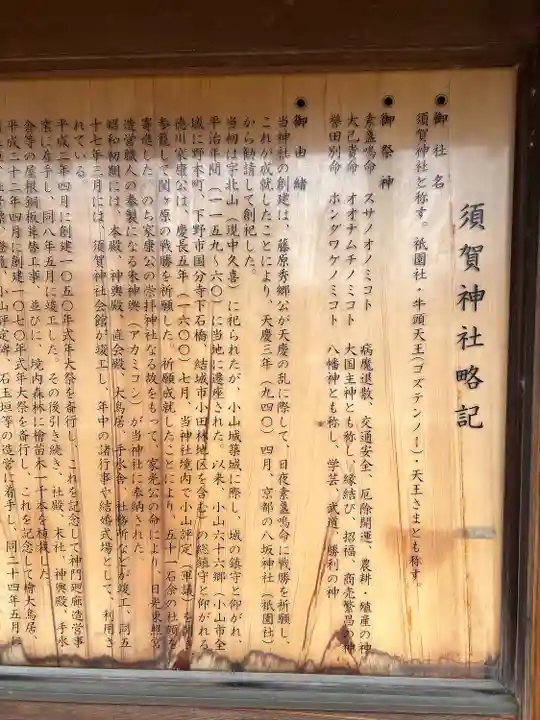 須賀神社略記
●御社名
須賀神社と称す。祇園社・牛頭天王(ゴズテンノー)・天王さまとも称す。
●御祭神
素盞鳴命　スサノオノミコト　病魔退散、交通安全、厄除開運、農耕・殖産の神
大己貴命　オオナムチノミコト　大国主神とも称し、縁結び、招福、商売繁昌の神
誉田別命　ホンダワケノミコト　八幡神とも称し、学芸、武道、勝利の神
●御由緒
当神社の創建は、藤原秀郷公が天慶の乱に際して、日夜素盞鳴命に戦勝を祈願し、
これが成就したことにより、天慶三年(九四〇)四月、京都の八坂神社(祇園社)
から勧請して創祀した。
当初は字北山(現中久喜)に祀られたが、小山城築城に際し、城の鎮守と仰がれ、
平治年間(一一五九～六〇)に当地に遷座された。以来、小山六十六郷(小山市全
域に野木町、下野市国分寺下石橋、結城市小田林地区を含む)の総鎮守と仰がれる
徳川家康公は、慶長五年(一六〇〇)七月、当神社境内で小山評定(軍議)を開き
参籠して関ヶ原の戦勝を祈願した。祈願成就したことにより、五十一石余の社領を
寄進した。のち家康公の崇拝神社なる故をもって、家光公の命により、日光東照宮
造営職人の奉製になる朱神輿(アカミコシ)が当神社に奉納された。
昭和初期には、本殿、神輿殿、直会殿、大鳥居、手水舎、社務所などが竣工、同五
十七年三月には、須賀神社会館が竣工し、年中の諸行事や結婚式場として、利用さ
れている。
平成二年四月に創建一〇五〇年式年大祭を斎行し、これを記念して神門廻廊造営事
業に着手し、同八年五月に竣工した。その後引き続き、社殿、末社、神輿殿、手水
舎等の屋根銅板葺替工事　並びに、境内森林に檜苗木一千本を植栽した
平成二十二年四月に創建一〇七〇年式年大祭を斎行し、これを記念して檜大鳥居、
小山評定碑、石玉垣等の造営に着手し、同二十四年五月